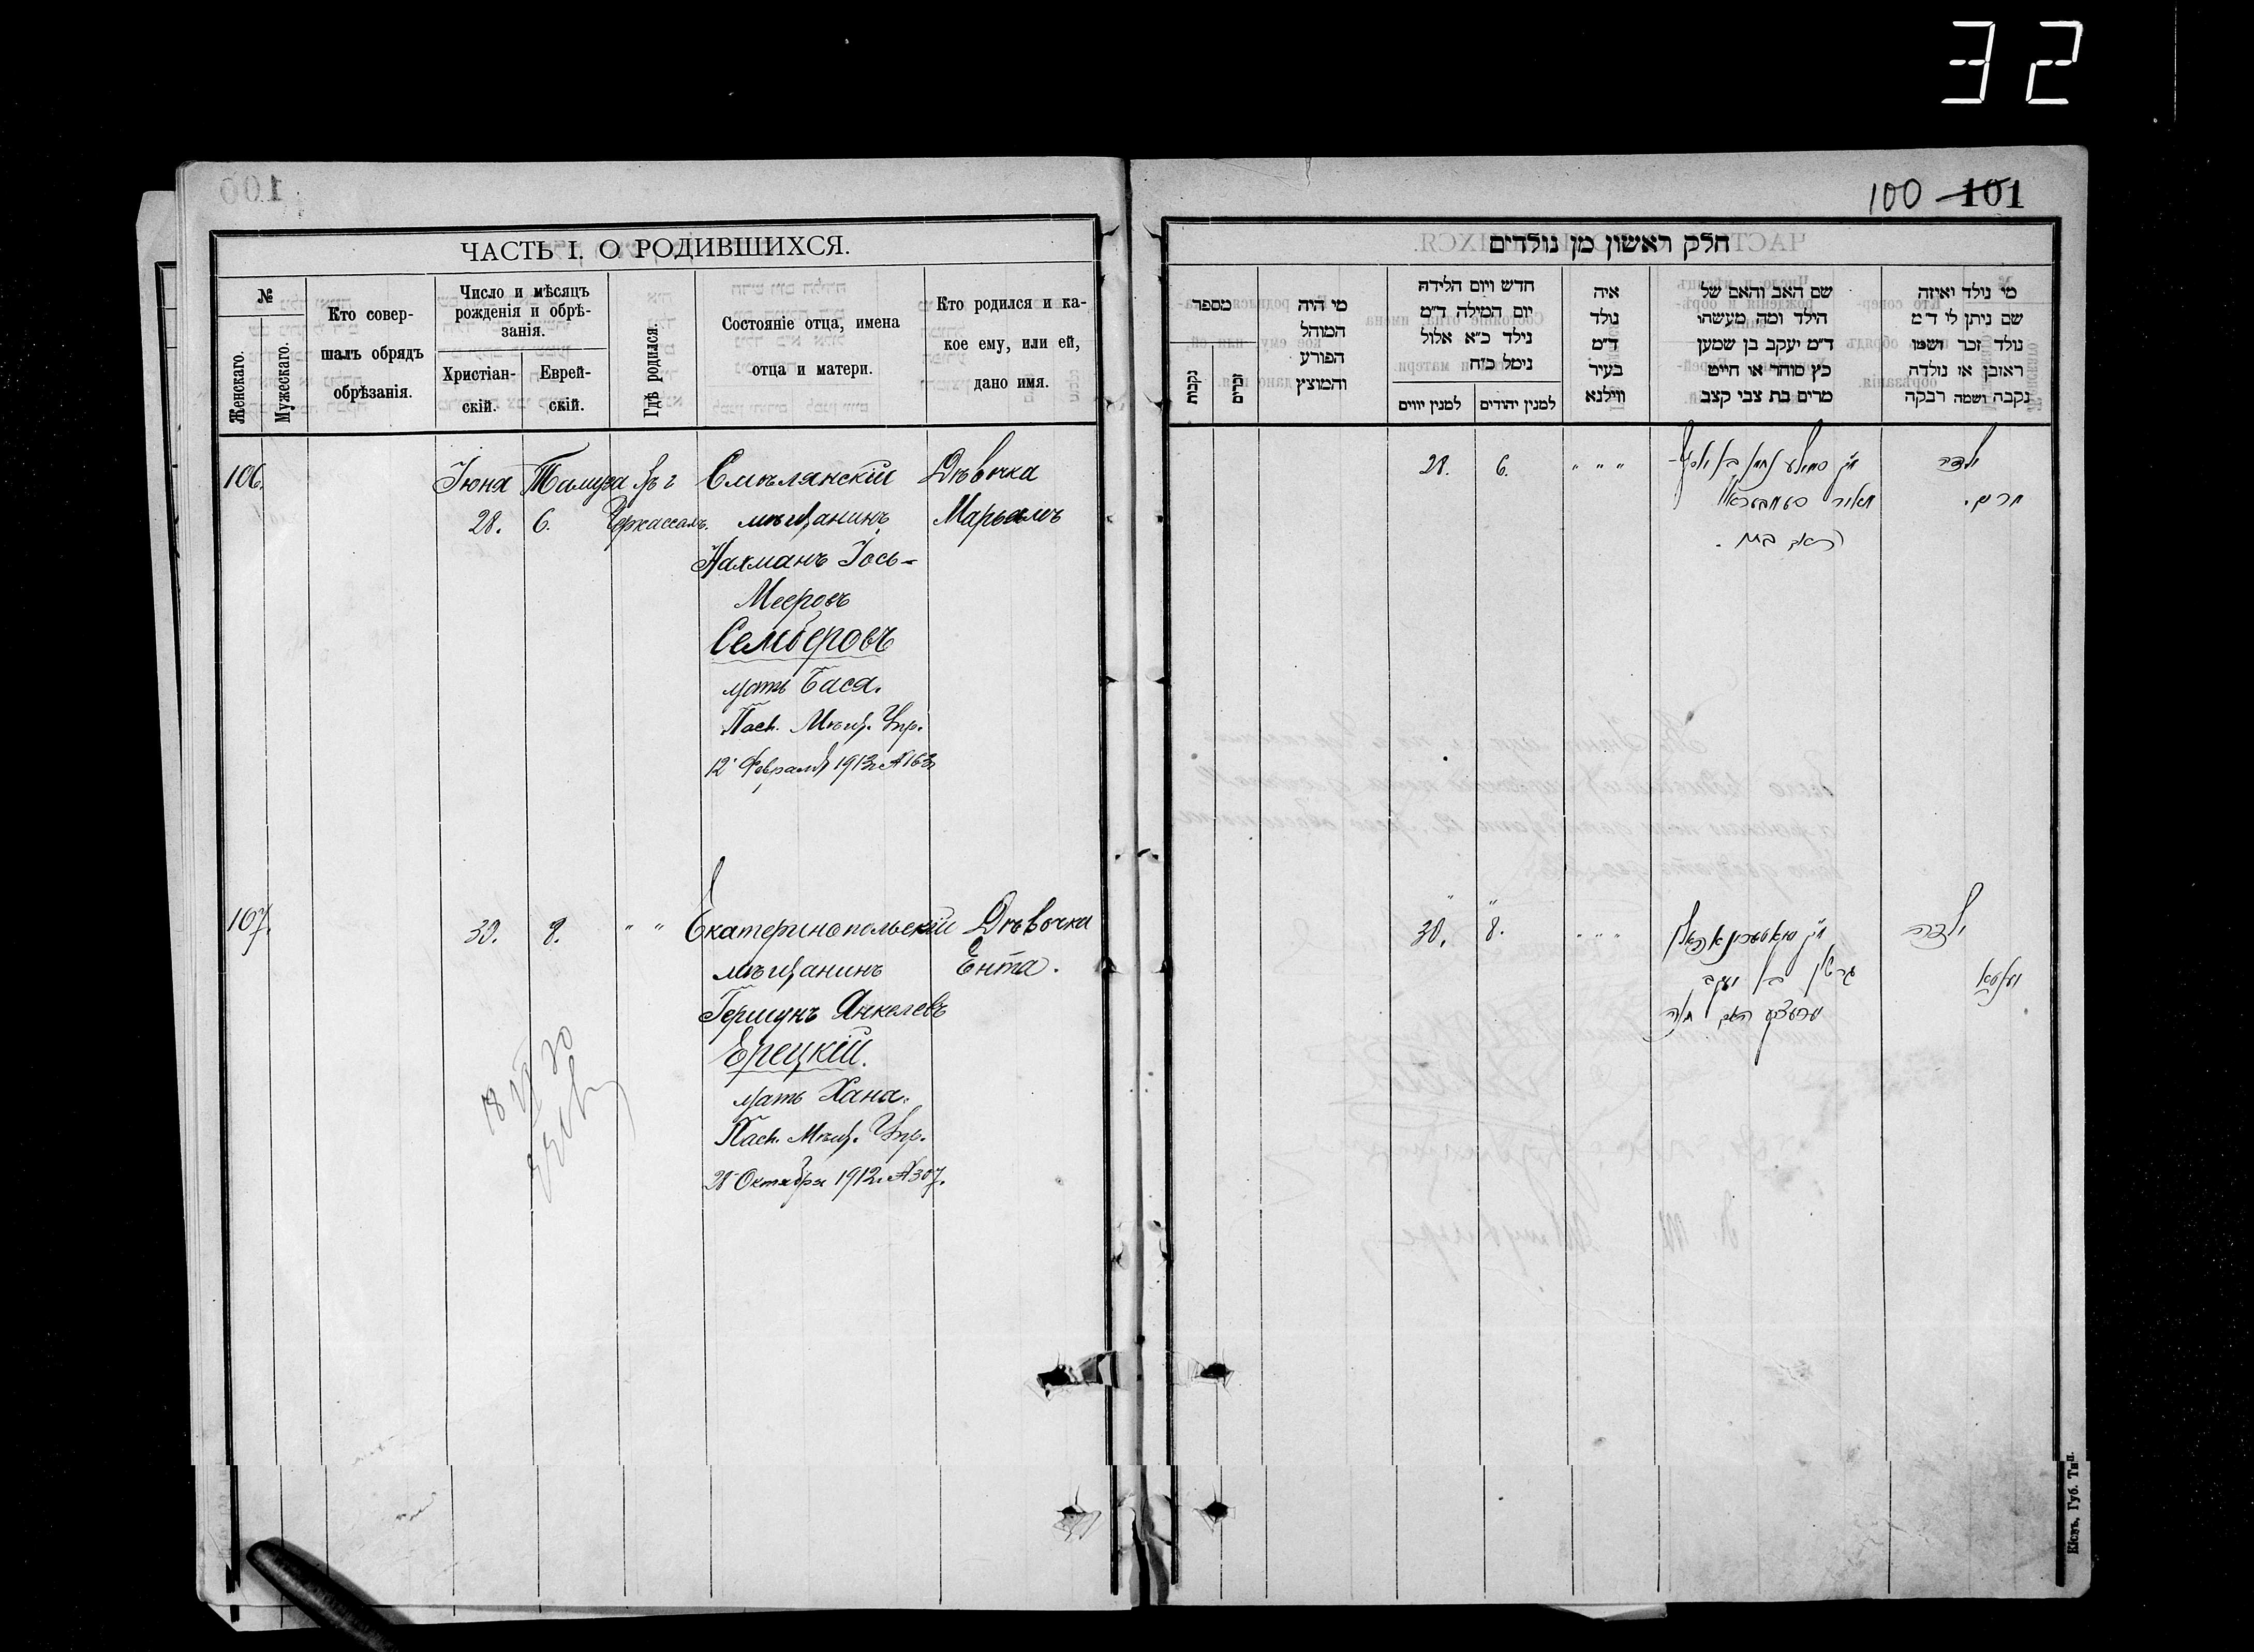 32
100 101
ЧАСТЬ I. О РОДИВШИХСЯ.
№
Женскаго.
Мужескаго.
Кто совер-
шалъ обрядъ
обрѣзанія.
Число и мѣсяцъ
рожденія и обрѣ-
занія.
Христіан-
скій.
Еврей-
скій.
Гдѣ родился.
Состояніе отца, имена
отца и матери.
Кто родился и ка-
кое ему, или ей,
дано имя.
106. Іюня Тамуза Въ г Смѣлянскій Дѣвочка
28. 6. Черкассахъ. мѣщанинъ Марьямъ
Нахманъ Іось-
Мееровъ
Семберовъ
мать Бася.
Пасп. Мѣщ. Упр.
12 Февраля 1913г. №163
107. 30. 8. " " Екатеринопольскій Дѣвочка
мѣщанинъ Ента.
Гершунъ Янкелевъ
Ерецкій.
мать Хана.
Пасп. Мѣщ. Упр.
28 Октября 1912г. №307.
חלק ראשון מן נולדים
מי נולד ואיזה
שם ניתן לו ד״מ
נולד זכר ושמו
ראובן או נולדה
נקבה ושמה רבקה
שם האב והאם של
הילד ומה מעשהו
ד״מ יעקב בן שמעון
כץ סוחר או חייט
מרים בת צבי קצב
איה
נולד
ד״מ
בעיר
ווילנא
חדש ויום הלידה
יום המילה ד״מ
נילד כ״א אלול
נימל כזה
למנין יהודים
למנין יווים
מי היה
המוהל
הפורע
והמוצץ
מספר
זכרים
נקבות
ילדה
מרים.
" " "
6. 28.
מאיר
ילדה
יענטא
" " "
8. 30.
גרשון בן יעקב
חנה
Кіевъ, Губ. Тип.